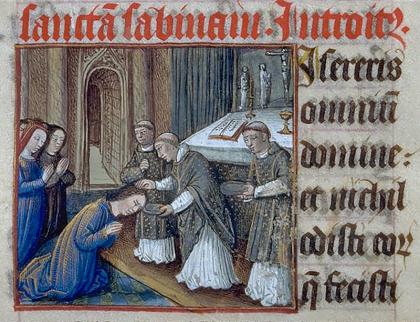 sanctã sabinam. Introit9.
Isereris
omniũ
domine:
et nichil
odisti eoꝝ
q̃ fecisti